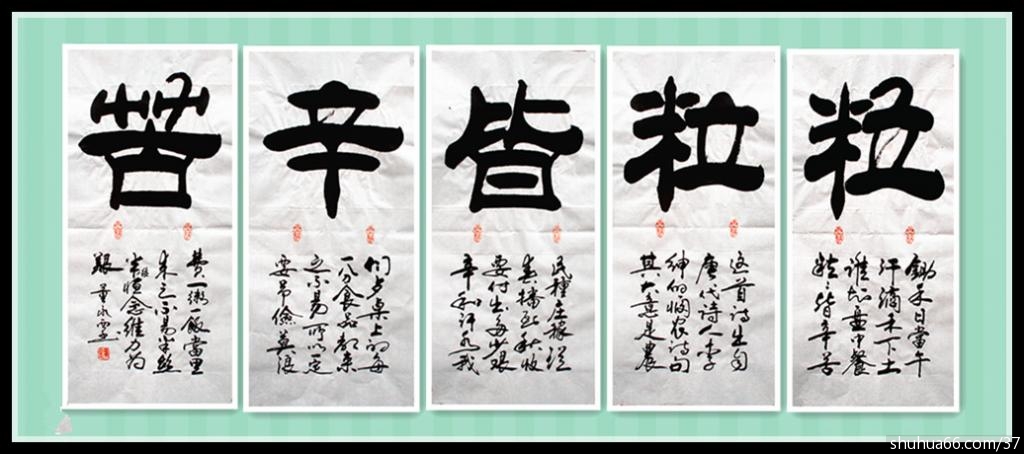 粒
鋤禾日當午
汗滴禾下土
誰知盤中餐
粒々皆辛苦
粒
这首诗出自
唐代诗人李
绅的悯农诗句
其大意是農
皆
民種庄稼从
春播到秋收
要付出多少艰
辛和汗水我
辛
们歺桌上的每
一份食品都来
之不易所以一定
要节儉莫浪
苦
费一粥一飯當思
来之不易半丝
半缕恒念维力为
艱
shuhua66.com/37